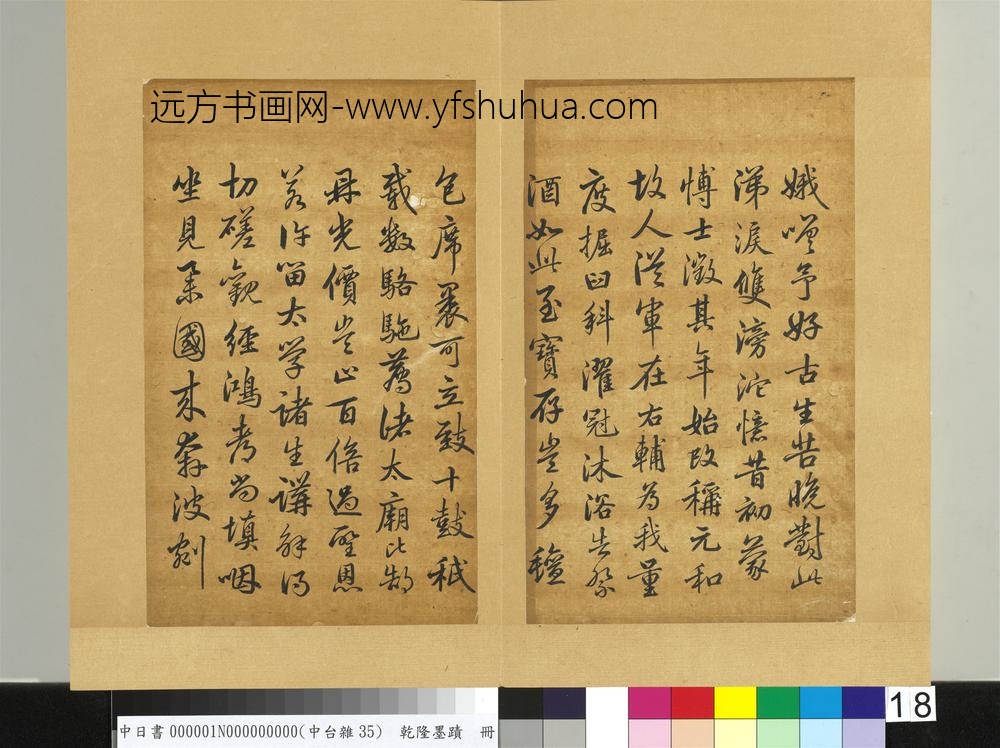 远方书画网-www.yfshuhua.com
娥嗟予好古生苦晚對此
涕淚雙滂沱憶昔初蒙
博士徵其年始改稱元和
故人從軍在右輔為我量
度掘臼科濯冠沐浴告祭
酒如此至寶存豈多氈
包席裹可立致十鼓祇
載數駱駞薦諸太廟比郜
鼎光價豈止百倍過聖恩
若許留太学諸生講解得
切磋觀經鴻都尚填咽
坐見舉國來奔波剜
18
中日書000001N000000000(中台雜35) 乾隆墨蹟 冊